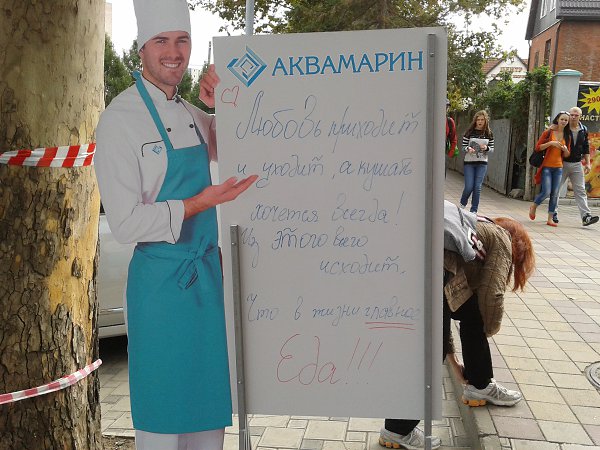 АКВАМАРИН
Любовь приходит
и уходит, а кушать
хочется всегда!
Из этого всего
исходит.
Что в жизни главное
Еда!!!
290